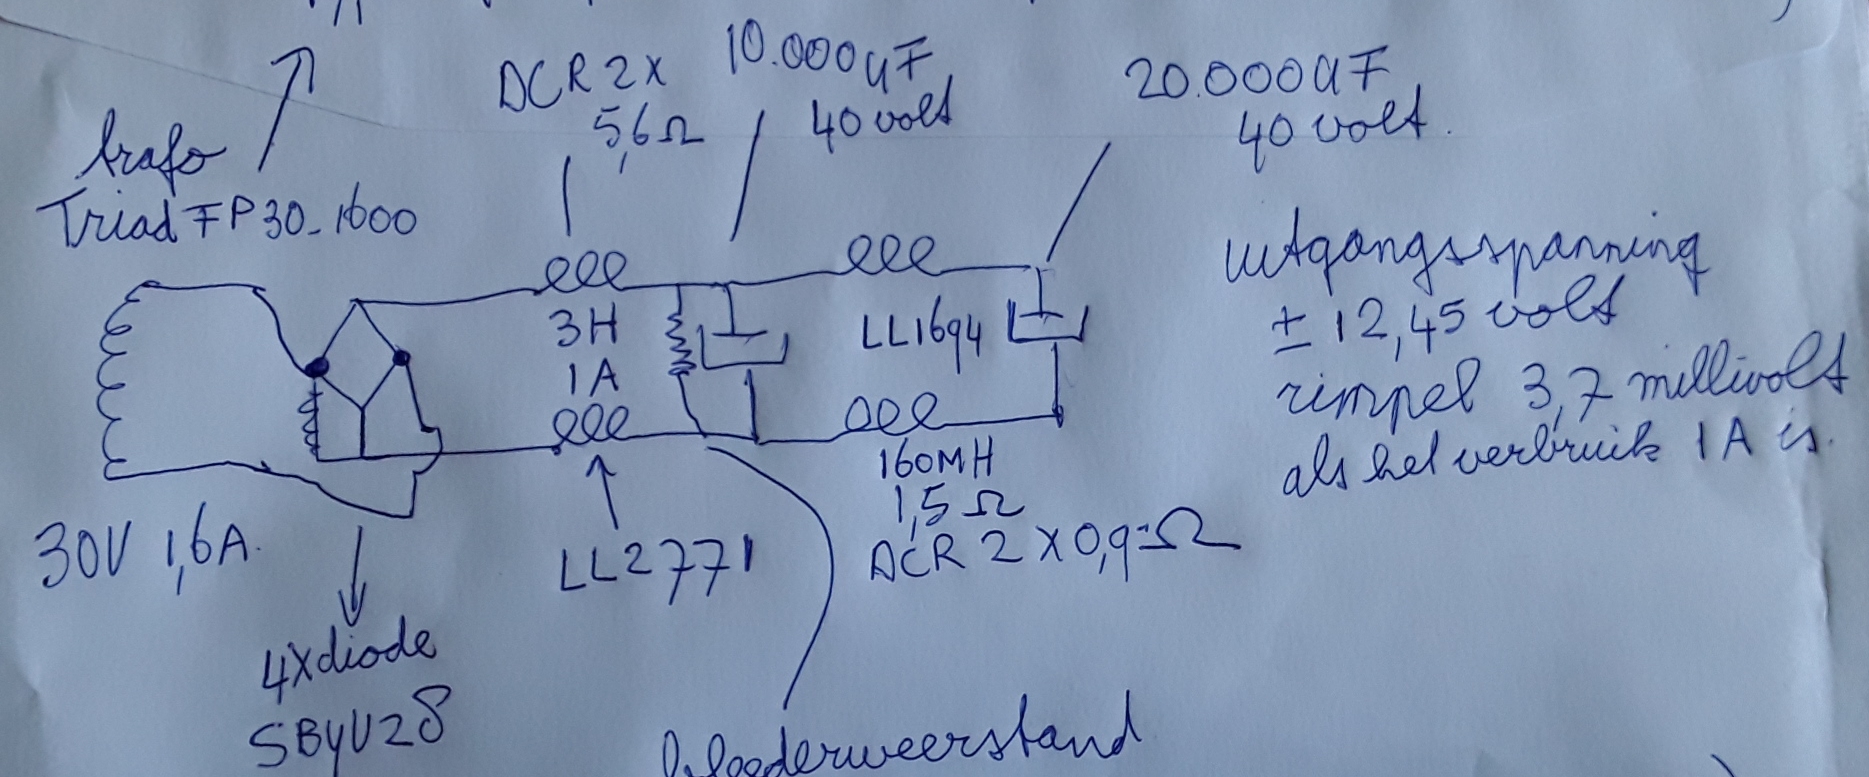 DCR 2X
5,6Ω
10.000uF
40 volt
20.000uF
40 volt.
trafo
Triad FP30-1600
uitgangsspanning
± 12,45 volt
rimpel 3,7 millivolt
als het verbruik 1A is.
3H
1A
LL1694
160MH
1,5Ω
DCR 2X0,9Ω
30V 1,6A.
LL2771
4xdiode
SByV28
bleederweerstand